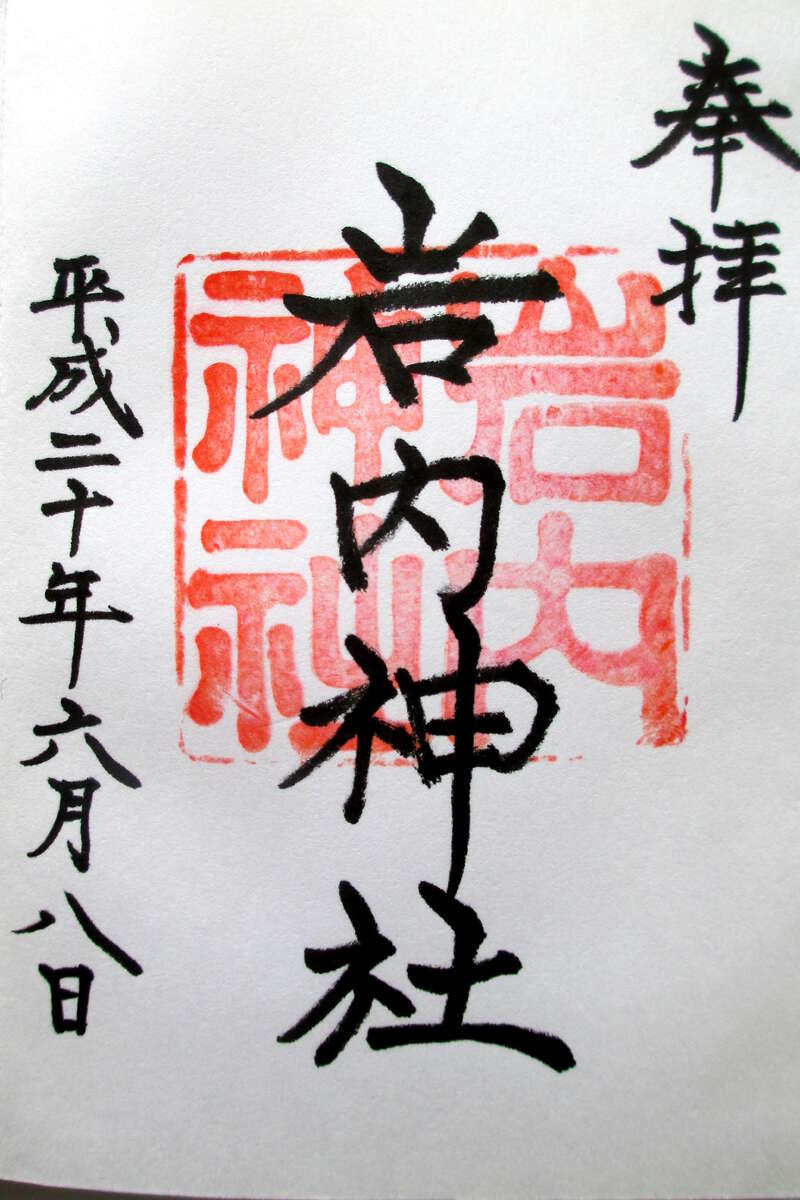 奉拝
岩内神社
岩内
神社
平成二十年六月八日